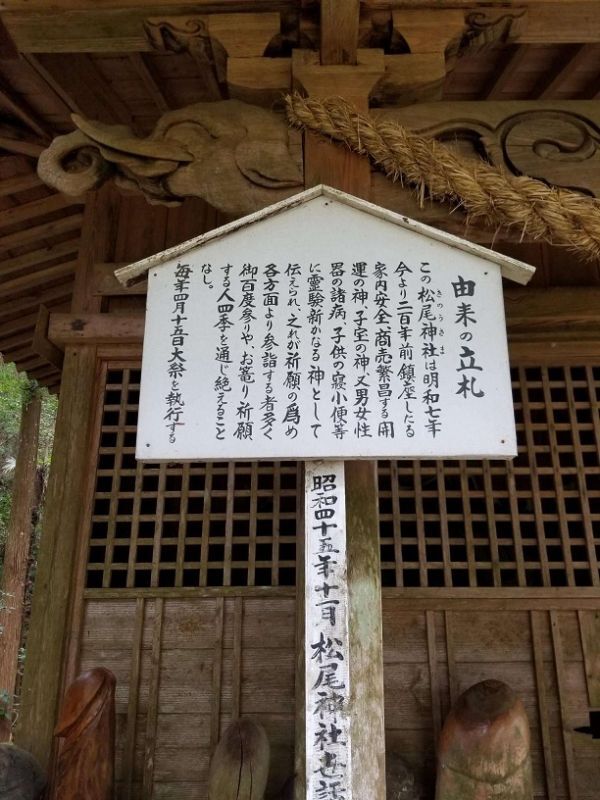 由来の立札
この松尾神社は明和七年
きのうさま
今より二百年前鎮座したる
家内安全、商売繁昌する開
運の神子宝の神又男女性
器の諸病、子供の寝小便等
に霊験新かなる神として
伝えられ、之れが祈願の爲め
各方面より参詣する者多く
御百度参りや、お篭り祈願
する人四季を通じ絶えること
なし。
毎年四月十五日大祭を執行する
昭和四十五年十一月 松尾神社世話